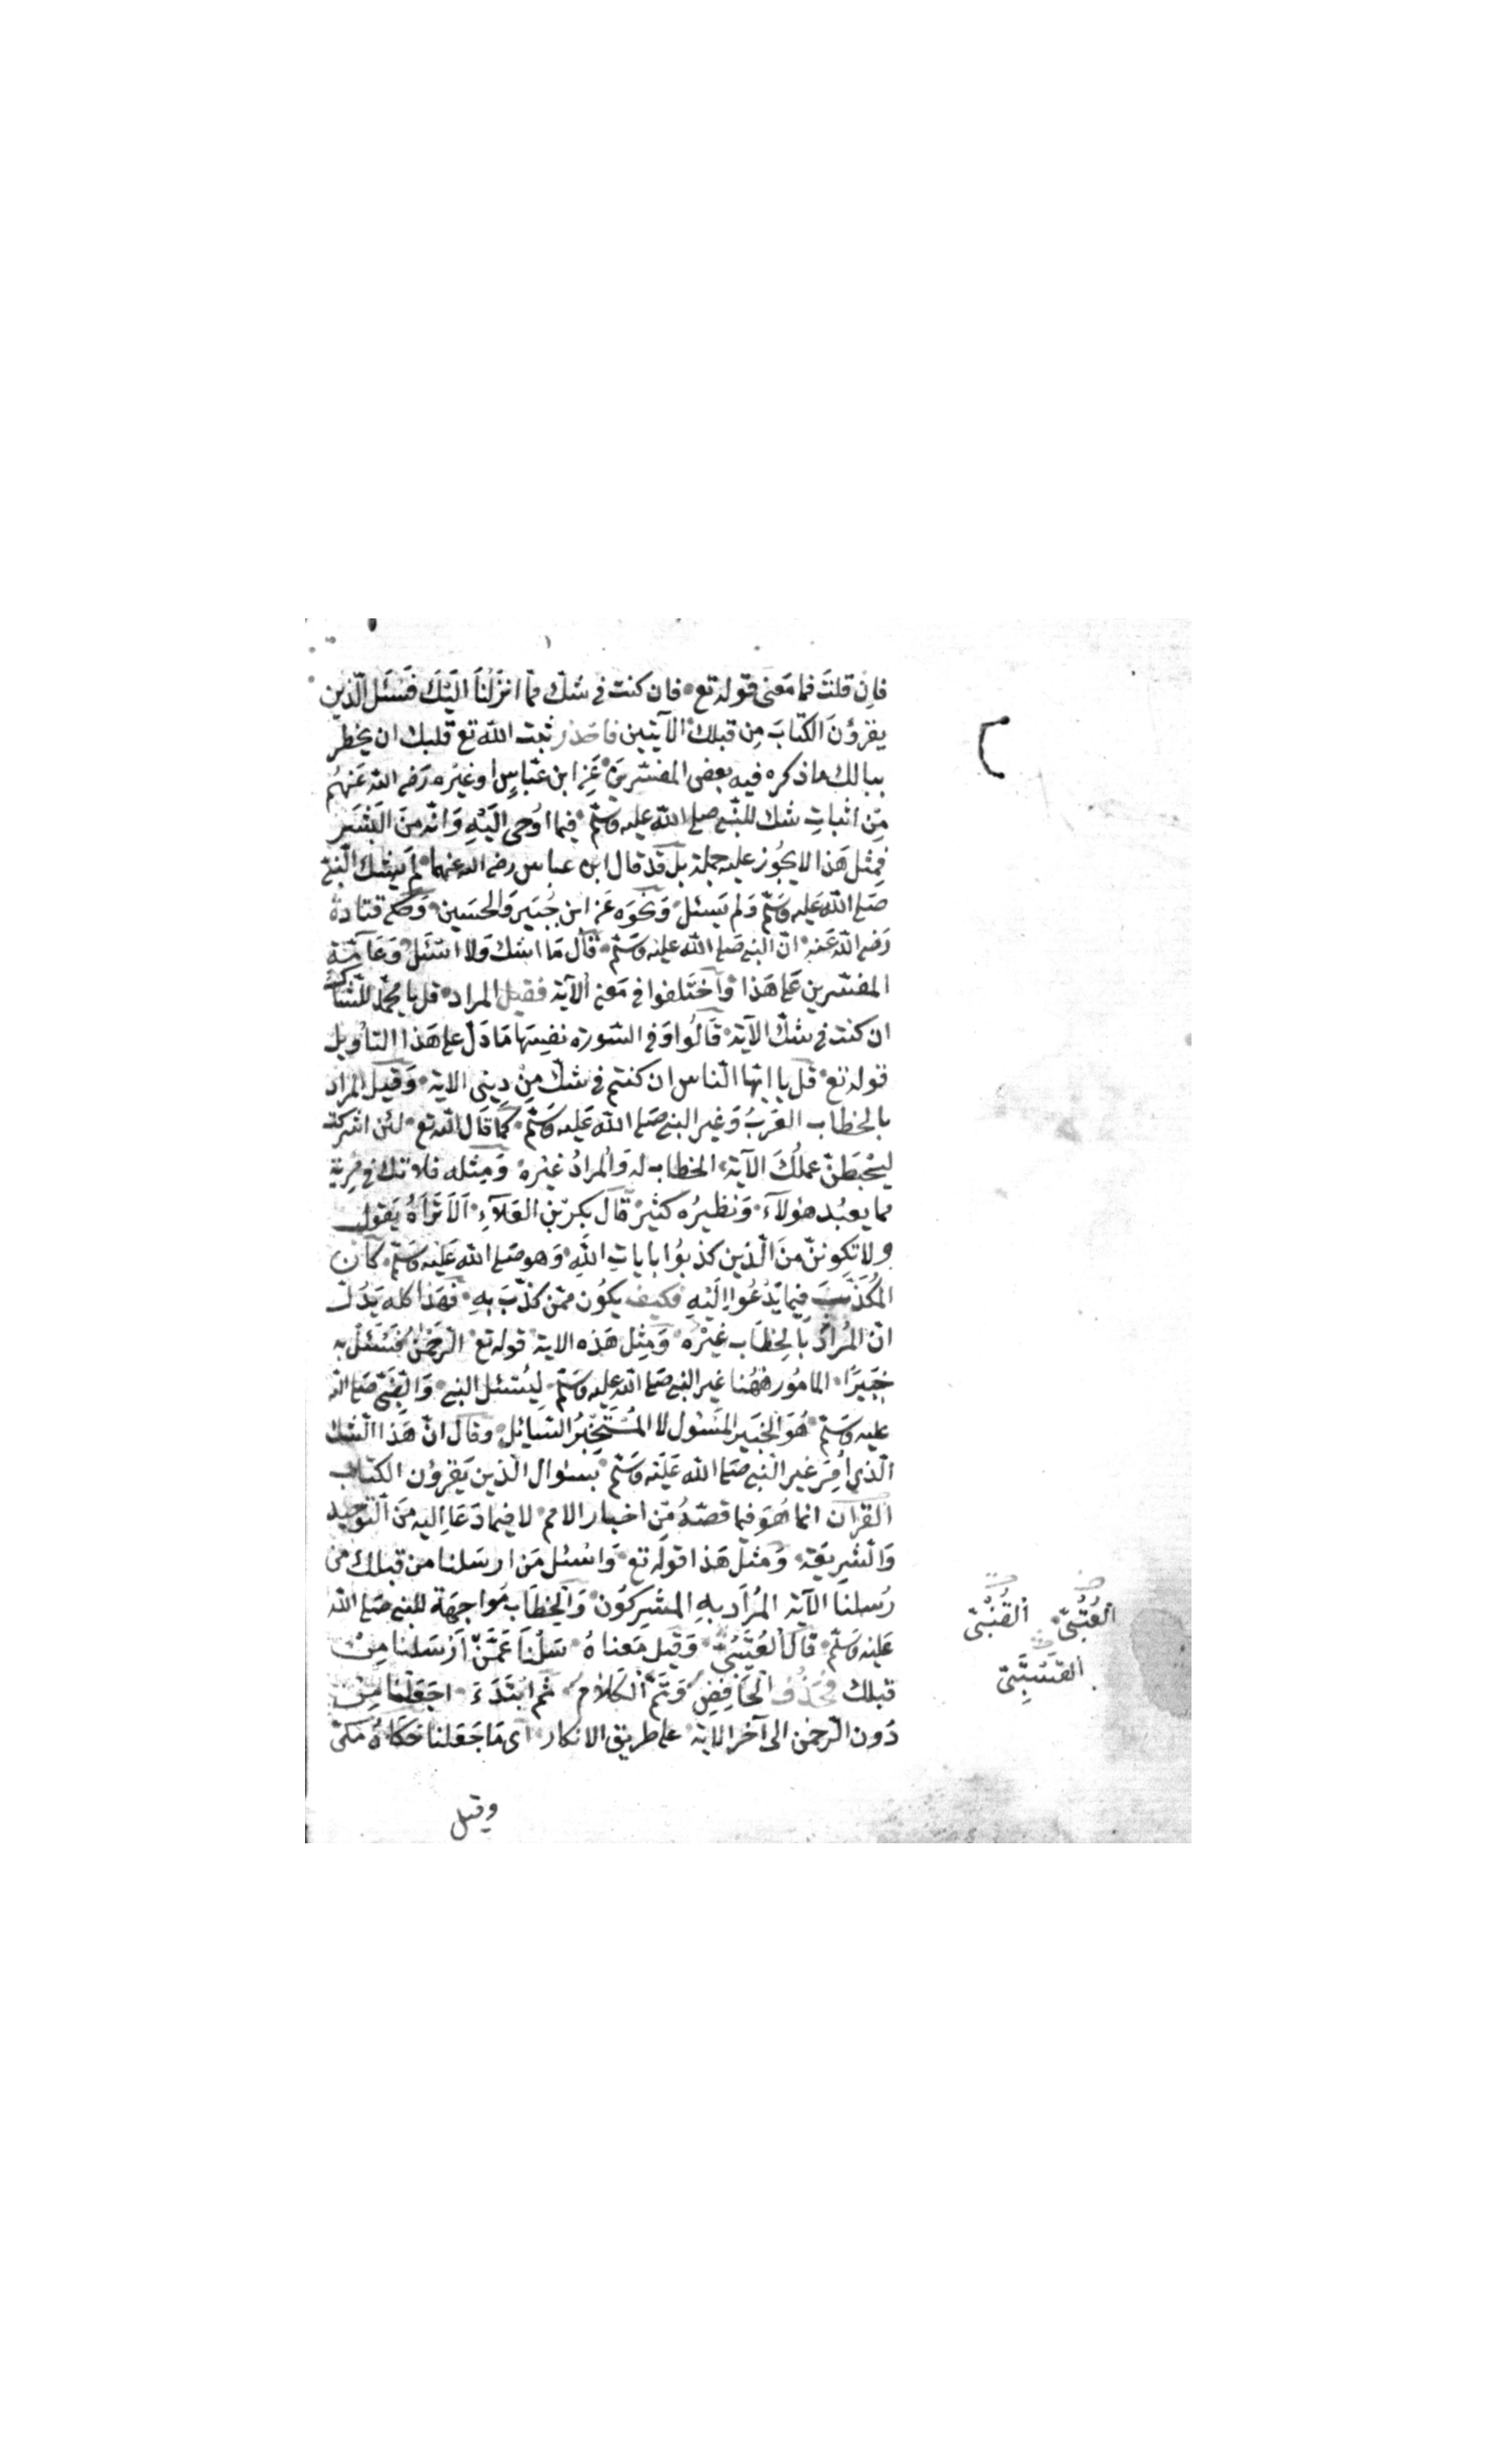 فان قلتَ فما مَعنى قوله تع فان كنت فى شكّ ممّا انزَلنَا اليَكَ فَسْئَل الّذين
يقرؤنَ الكتابَ مِن قبلك الآيتين فاحذر ثبت الله تع قلبك ان يخطر
ببالك ما ذكره فيه بعض المفسّرينَ عَن ابن عبّاسٍ او غيره رَضى الله عَنهُم
مِن اثباتِ شك للنّبى صلى الله عليه وسلّم فيما اوُحى اليَهِ وَانّه منَ البَشَر
فمِثل هَذا لا يجُوز عليه جملة بل قَد قال ابن عباس رضى الله عنهما لم يشك النّبىّ
صَلى الله عَليه وسَلّم وَلم يَسئل وَنحوَه عَن ابن جُبَير وَالحسَين وَحَكى قتادة
رَضى الله عَنه انّ النبى صَلى الله عليه وسَلّم قال مَا اشك وَلا اسَئَل وَعَامّة
المفسّرين عَلى هَذا وَاختَلفوا فى مَعنى الآية فقيل المراد قل يا محمّد للشّاك
ان كنت فى شكّ الآية قالُوا وَفى السّورة نفسِهَا مَا دَلّ على هَذا التأويل
قوله تع قل يا ايّها النّاس ان كنتم فى شكّ مِن دِينى الاية وَقيل المراد
بالخطاب العَرَبُ وَغير النبى صَلى الله عَليه وسَلّم كمَا قَال الله تع لئن اشركت
ليَحْبَطَنّ عملُكَ الآية الخطاب له وَالمرادُ غيْره وَمِثله فلا تك فى مِرية
مما يعبُد هؤلآء وَنظيرُه كثير قال بكر بْن العَلآءِ اَلَا تَرَاهُ يَقول
ولا تكوننّ منَ الّذين كذبوُا باياتِ اللهِ وَهو صَلى الله عَليْه وسَلّم كان
المُكَذَّبَ فِيما يَدْعُوا اِليْهِ فكيف يكُون ممّن كذّبَ بهِ فهَذا كله يَدُلّ
انّ المُرادَ بَالخِطَاب غيْرَه وَمِثل هَذه الاية قوله تع الرّحمٰن فَسْئل به
خبَيرًا المامُور هٰهُنا غير النبى صَلى الله عليه وسَلّم ليسَئل النبى وَالنّبىّ صَلى الله
عليه وسَلّم هُوَ الخبَير المسَئول لا المُسْتَخبِرُ السّائِل وقال انّ هَذا الشك
الّذى اُمِرَ غير النّبى صَلى الله عَليْه وسَلّم بسؤال الّذين يَقرؤن الكتاب
القرآن انما هُوَ فيما قصّهُ مِن اخبار الامم لا فيما دَعَا اِليه منَ التّوحيد
وَالشريعَة وَمثل هَذا قوله تع وَاسْئل مَن ارسَلنا من قبلك من
رُسلنا الآية المُرَاد بِهِ المشركون وَالخطَاب مُواجهَة للنبى صَلى الله
عَليْه وسَلّم قالَ العُتَبىّ وَقيل مَعناهُ سَلْنَا عَمّنْ اَرْسَلنا مِنْ
قبلك فحُذف الخَافِضِ وَتَمّ الكَلامُ ثم ابْتَدَءَ اَجَعَلنا مِنْ
دُون الرّحمٰن الى آخر الاية على طريق الانكار اى مَا جَعَلنا حَكاهُ مَكىّ
وقيل
العُتْبىّ القُتَبىّ
القتَيْبِىّ